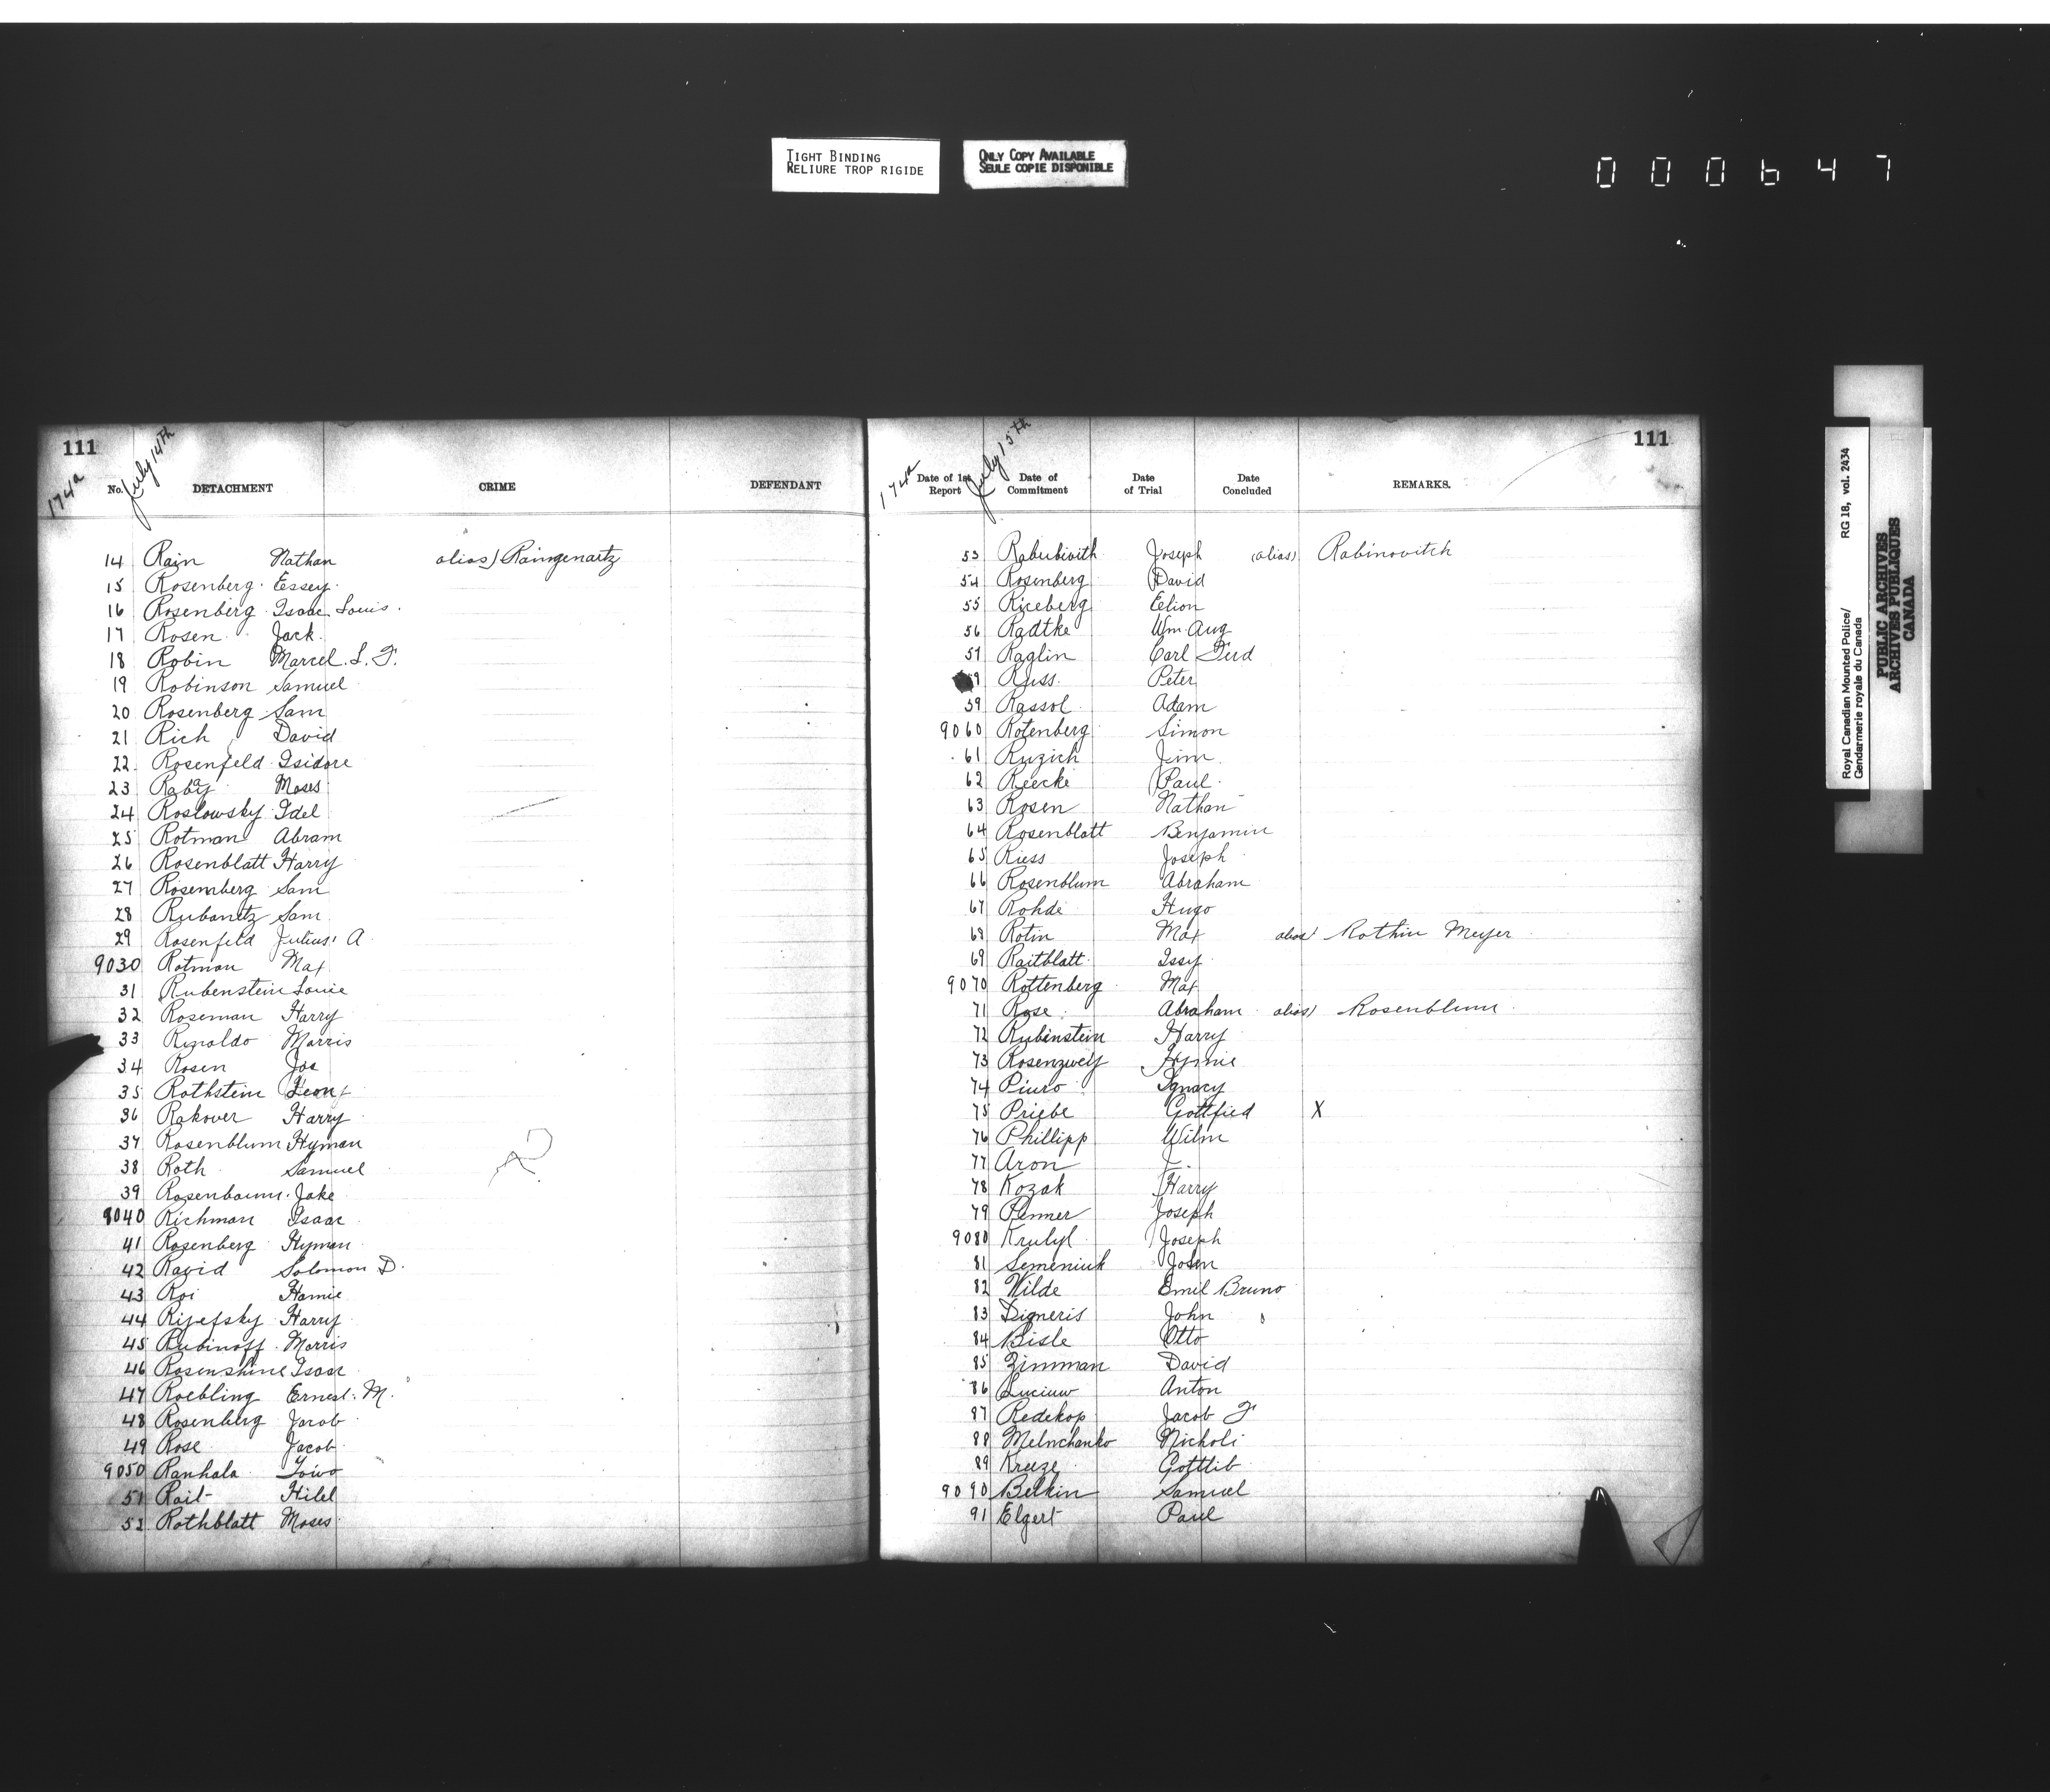 TIGHT BINDING
RELIURE TROP RIGIDE
ONLY COPY AVAILABLE
SEULE COPIE DISPONIBLE
000647
111
174a
July 14th
No. DETACHMENT CRIME DEFENDANT
14 Rain Nathan alias) Raingenartz
15 Rosenberg Essey
16 Rosenberg Isaac Louis.
17 Rosen Jack
18 Robin Marcel. L. F.
19 Robinson Samuel
20 Rosenberg Sam
21 Rich David
22 Rosenfeld Isidore
23 Raby Moses
24 Roslowsky Idel
25 Rotman Abram
26 Rosenblatt Harry
27 Rosemberg Sam
28 Rubanitz Sam
29 Rosenfeld Julius A
9030 Rotman Max
31 Rubenstein Louie
32 Roseman Harry
33 Rinaldo Morris
34 Rosen Joe
35 Rothstein Leon
36 Rakover Harry
37 Rosenblum Hyman
38 Roth Samuel
39 Rosenbaum Jake
9040 Richman Isaac
41 Rosenberg Hyman
42 Ravid Solomon D.
43 Roi Hamie
44 Rijefsky Harry
45 Rubinoff Morris
46 Rosenshine Isaac
47 Roebling Ernest. M.
48 Rosenberg Jacob
49 Rose Jacob
9050 Ranhala Toivo
51 Rait Hilel
52 Rothblatt Moses
111
174a
July 15th
Date of 1st Report Date of Commitment Date of Trial Date Concluded REMARKS.
53 Rabubivith Joseph (alias) Rabinovitch
54 Rosenberg David
55 Riceberg Eelion
56 Radtke Wm. Aug
57 Raglin Carl Ferd
9 Russ Peter
59 Rassol Adam
9060 Rotenberg Simon
61 Ruzich Jim
62 Reecke Paul
63 Rosen Nathan
64 Rosenblatt Benjamin
65 Riess Joseph
66 Rosenblum Abraham
67 Rohde Hugo
68 Rotin Max alias) Rothin Meyer
69 Raitblatt Issy
9070 Rottenberg Max
71 Rose Abraham alias) Rosenblum
72 Rubinstein Harry
73 Rosenzweig Hymie
74 Piuro Ignacy
75 Priebe Gottfied X
76 Phillipp Wilm
77 Aron J.
78 Kozak Harry
79 Penner Joseph
9080 Krulyl Joseph
81 Semeniuk Josen
82 Wilde Emil Bruno
83 Digneris John
84 Bisle Otto
85 Zimman David
86 Luciuw Anton
87 Redekop Jacob F
88 Melnchanko Nicholi
89 Kreeze Gottlib
9090 Belkin Samuel
91 Elgert Paul
Royal Canadian Mounted Police/ RG 18, vol. 2434
Gendarmerie royale du Canada
PUBLIC ARCHIVES
ARCHIVES PUBLIQUES
CANADA